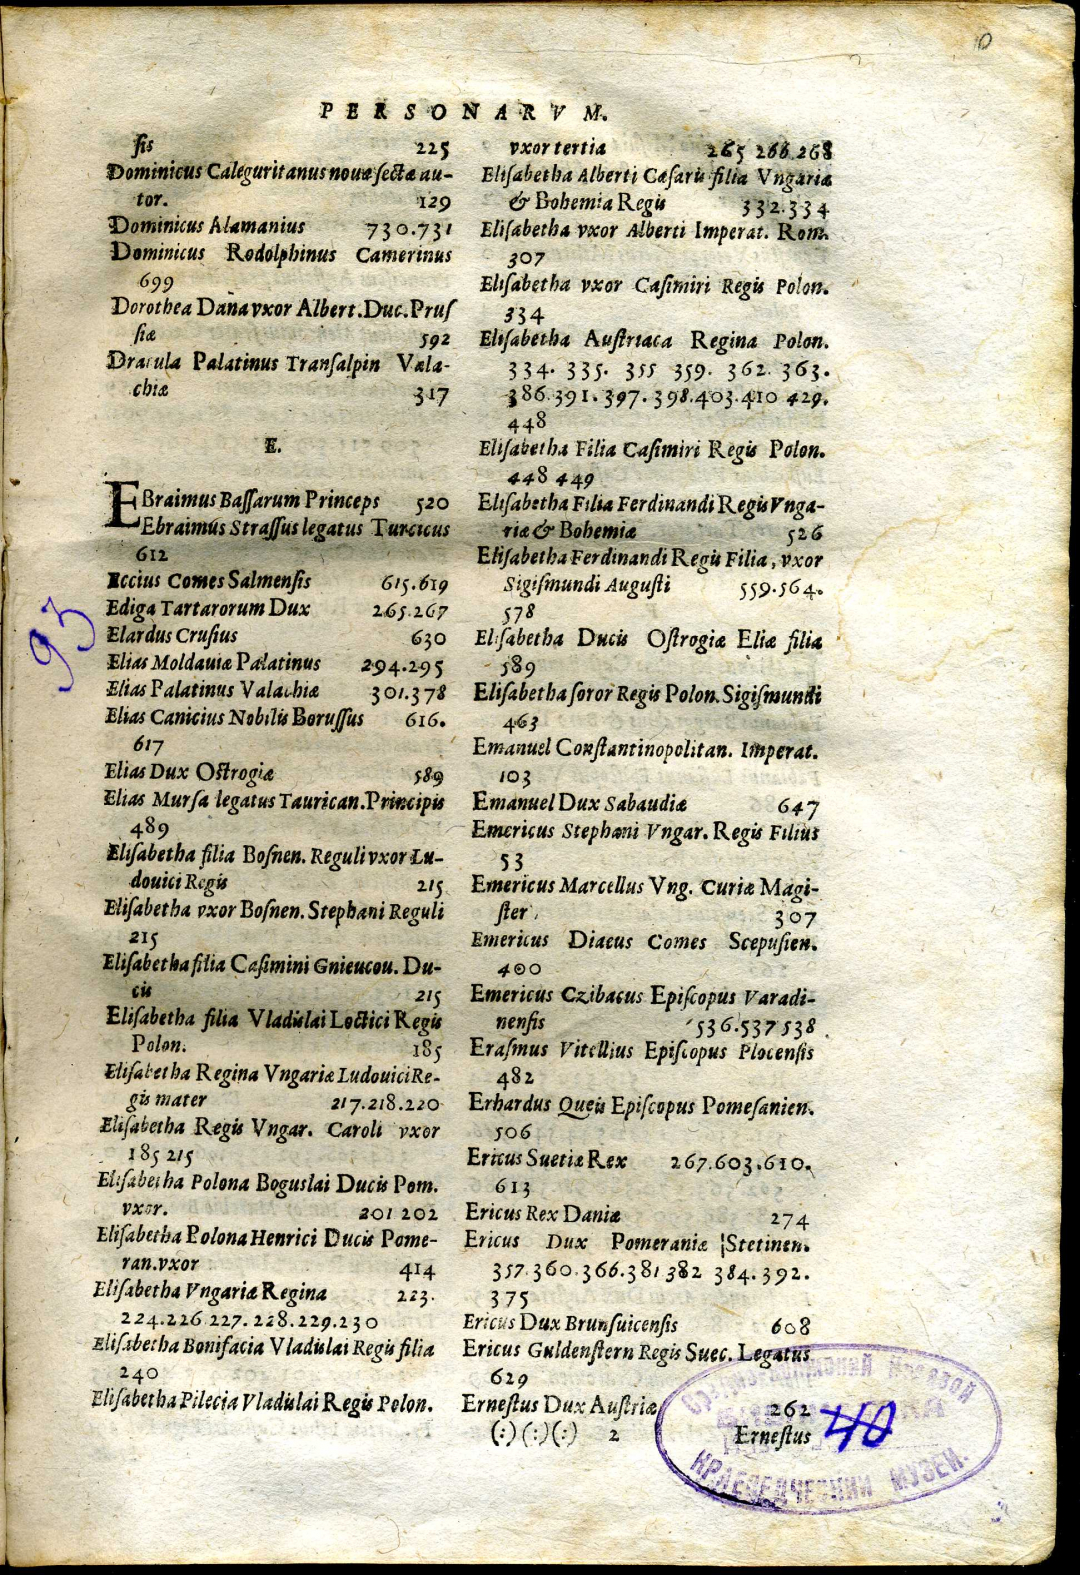 PERSONARVM.
ſis 225
Dominicus Caleguritanus nouæ ſectæ au-
tor. 129
Dominicus Alamanius 730.731
Dominicus Rodolphinus Camerinus
699
Dorothea Dana vxor Albert. Duc. Pruſ
ſiæ 592
Dracula Palatinus Tranſalpin Vala-
chiæ 317
E.
EBraimus Baſſarum Princeps 520
Ebraimus Straſſus legatus Turcicus
612
Eccius Comes Salmenſis 615.619
Ediga Tartarorum Dux 265.267
Elardus Cruſius 630
Elias Moldauiæ Palatinus 294.295
Elias Palatinus Valachiæ 301.378
Elias Canicius Nobilis Boruſſus 616.
617
Elias Dux Oſtrogiæ 589
Elias Murſa legatus Taurican. Principis
489
Eliſabetha filia Boſnen. Reguli vxor Lu-
douici Regis 215
Eliſabetha vxor Boſnen. Stephani Reguli
215
Eliſabetha filia Caſimini Gnieucou. Du-
cis 215
Eliſabetha filia Vladislai Loctici Regis
Polon. 185
Eliſabetha Regina Vngariæ Ludouici Re-
gis mater 217.218.220
Eliſabetha Regis Vngar. Caroli vxor
185 215
Eliſabetha Polona Boguslai Ducis Pom.
vxor. 201 202
Eliſabetha Polona Henrici Ducis Pome-
ran. vxor 414
Eliſabetha Vngariæ Regina 223.
224.226 227. 228.229.230
Eliſabetha Bonifacia Vladislai Regis filia
240
Eliſabetha Pilecia Vladislai Regis Polon.
vxor tertia 265 266.268
Eliſabetha Alberti Cæſaris filia Vngariæ
& Bohemiæ Regis 332.334
Eliſabetha vxor Alberti Imperat. Rom.
307
Eliſabetha vxor Caſimiri Regis Polon.
334
Eliſabetha Auſtriaca Regina Polon.
334. 335. 355 359. 362. 363.
386.391. 397. 398.403.410 429.
448
Eliſabetha Filia Caſimiri Regis Polon.
448 449
Eliſabetha Filia Ferdinandi Regis Vnga-
riæ & Bohemiæ 526
Eliſabetha Ferdinandi Regis Filia, vxor
Sigiſmundi Auguſti 559.564.
578
Eliſabetha Ducis Oſtrogiæ Eliæ filia
589
Eliſabetha ſoror Regis Polon. Sigiſmundi
463
Emanuel Conſtantinopolitan. Imperat.
103
Emanuel Dux Sabaudiæ 647
Emericus Stephani Vngar. Regis Filius
53
Emericus Marcellus Vng. Curiæ Magi-
ſter 307
Emericus Diaeus Comes Scepuſien.
400
Emericus Czibacus Epiſcopus Varadi-
nenſis 536.537 538
Eraſmus Vitellius Epiſcopus Plocenſis
482
Erhardus Queis Epiſcopus Pomeſanien.
506
Ericus Suetiæ Rex 267.603.610.
613
Ericus Rex Daniæ 274
Ericus Dux Pomeraniæ Stetinen.
357.360.366.381 382 384.392.
375
Ericus Dux Brunſuicenſis 608
Ericus Guldenſtern Regis Suec. Legatus
629
Erneſtus Dux Auſtriæ 262
(:)(:)(:) 2 Erneſtus
93
40
КРАЕВЕДЧЕСКИЙ МУЗЕЙ.